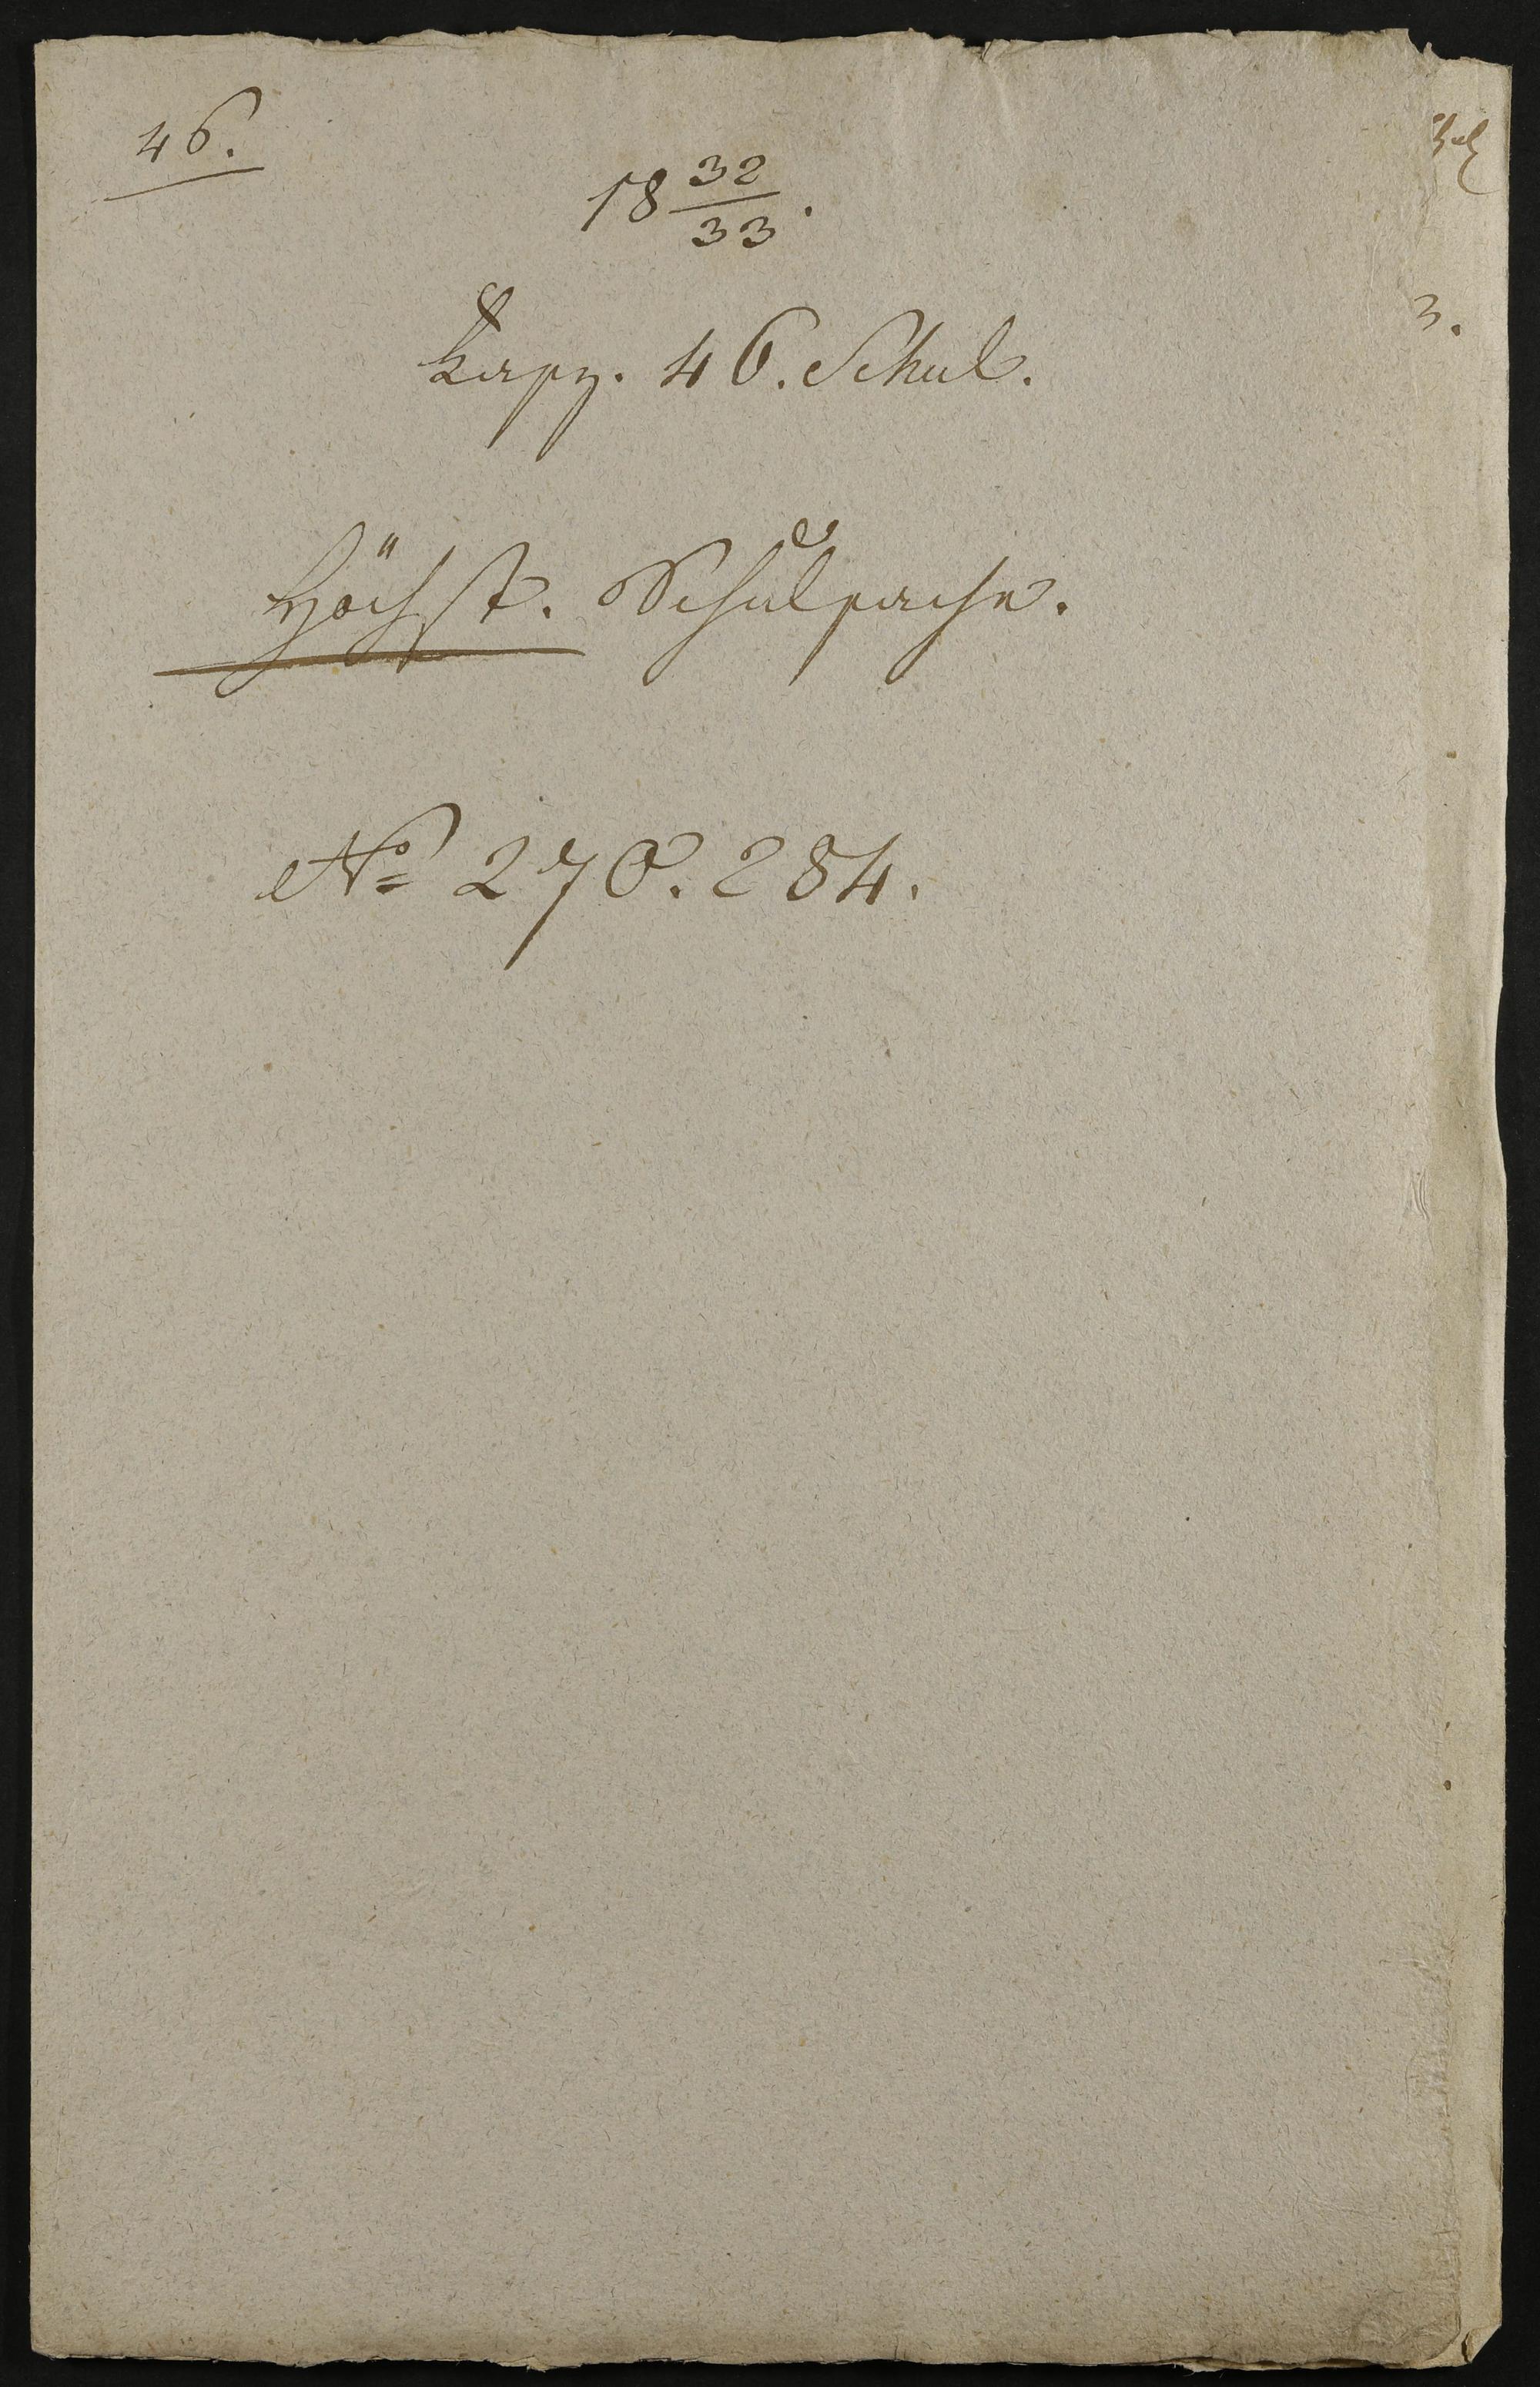 46.
18 32/33.
Fasz. 46. Schul.
Höchst. Schulsache.
No 270. 284.
3.